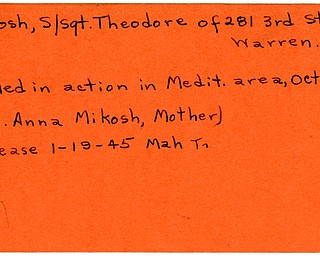 osh, S/sgt. Theodore of 281 3rd St
Warren.
led in action in Medit. area, Oct
. Anna Mikosh, Mother)
ease 1-19-45 Mah Tr